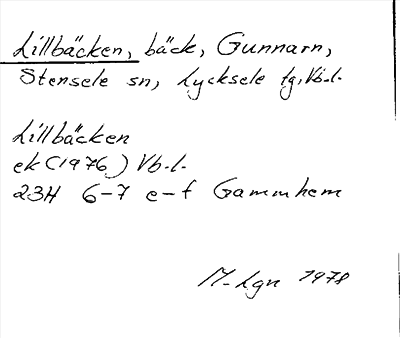 Lillbäcken, bäck, Gunnarn,
Stensele sn, Lycksele tg, Vb.l.
Lillbäcken
ek (1976) Vb.l.
23H 6-7 e-f Gammhem
M-Lgn 1978